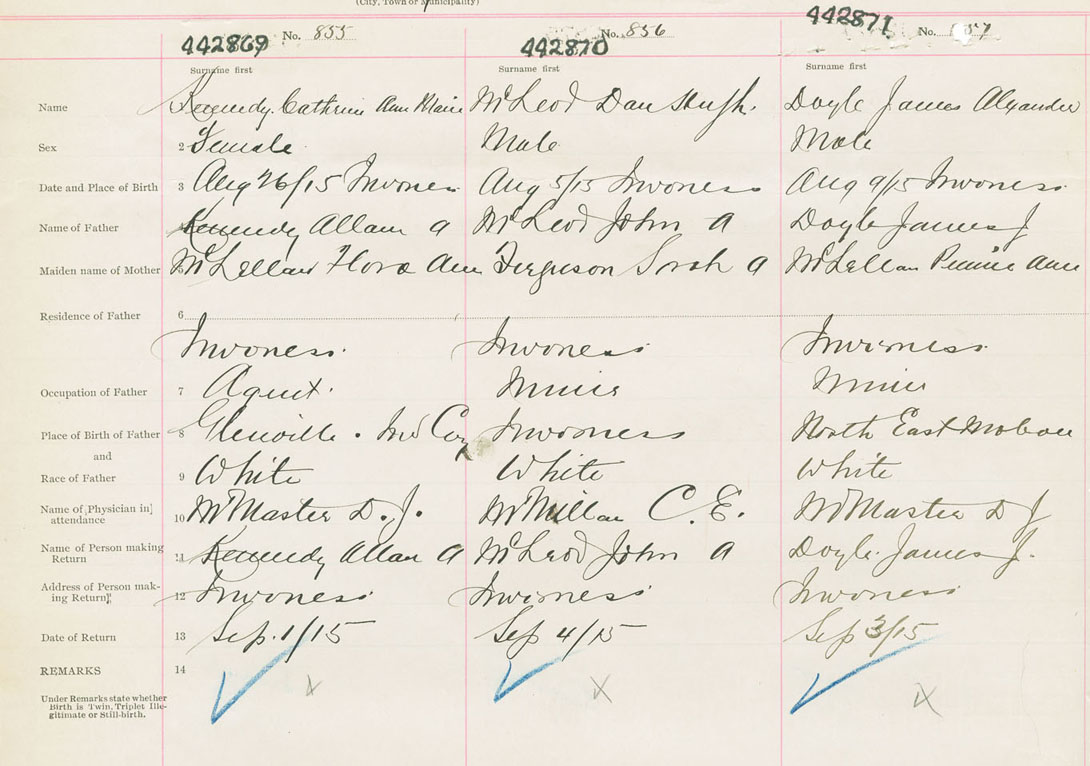 (City, Town or Municipality)
442869 No. 855 442870 No. 856 442871 No. 857
Surname first Surname first Surname first
Name Kennedy, Catherine Ann Marie McLeod Dan Hugh. Doyle James Alexander
Sex 2 Female Male Male
Date and Place of Birth 3 Aug 26/15 Inverness Aug 5/15 Inverness Aug 9/15 Inverness
Name of Father Kennedy Allan A McLeod John A Doyle James J
Maiden name of Mother McLellan Flora Ann Ferguson Sarah A McLellan Ann
Residence of Father 6
Inverness. Inverness Inverness
Occupation of Father 7 Agent. Miner Miner
Place of Birth of Father 8 Glenville. Inv Co Inverness North East Mabou
and
Race of Father 9 White White White
Name of Physician in attendance 10 McMaster D. J. McMillan C. E. McMaster D J
Name of Person making Return 11 Kennedy Allan A McLeod John A Doyle. James J.
Address of Person making Return 12 Inverness Inverness Inverness
Date of Return 13 Sep. 1/15 Sep 4/15 Sep 3/15
REMARKS 14
Under Remarks state whether
Birth is Twin, Triplet Ille-
gitimate or Still-birth.